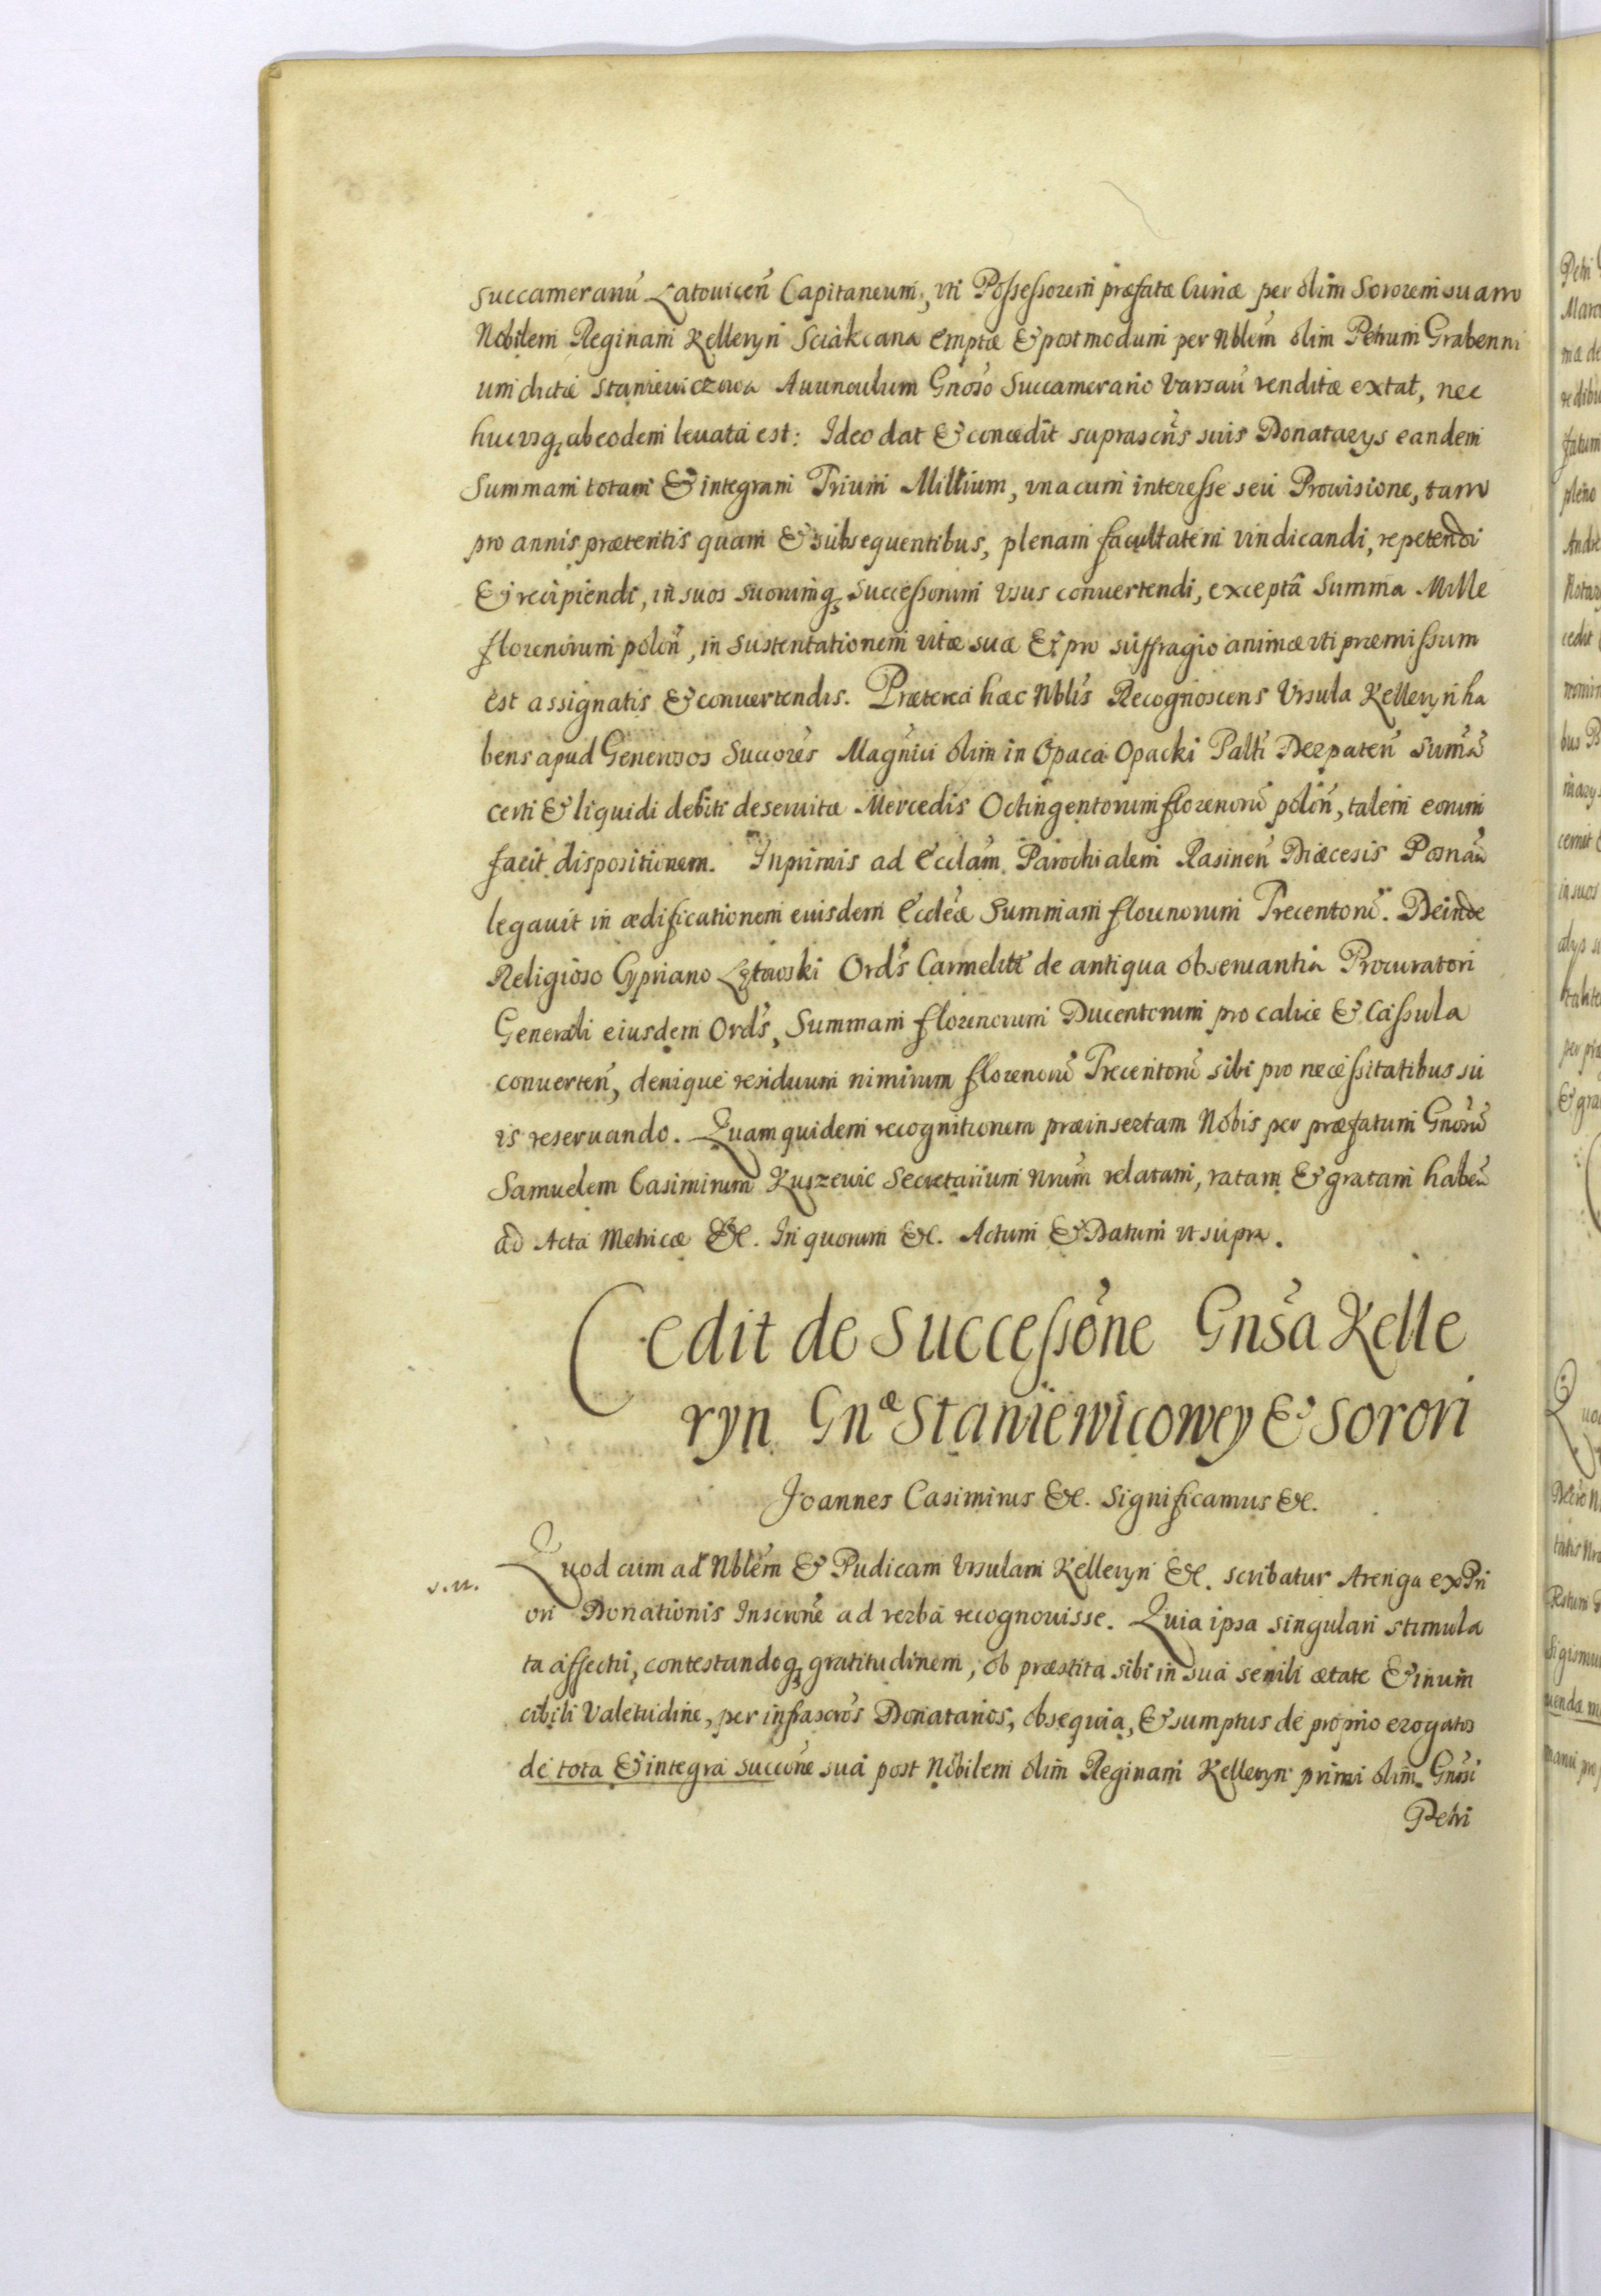 Succameranū Latouiceñ Capitaneum, vti Possessorem præfatæ Curiæ per olim Sororem suam
Nobilem Reginam Kelleryn Sciakcana emptæ & postmodum per Nblem olim Petrum Grabenni
um dictæ Staniewiczowa Auunculum Gnoso Succamerario Varsau venditæ extat, nec
hucusq, ab eodem leuata est: Ideo dat & concedit suprascris suis Donatarys eandem
Summam totam & integram Trium Millium, vna cum interesse seu Prouisione, tam
pro annis præteritis quam & subsequentibus, plenam facultatem vindicandi, repetendi
& recipiendi, in suos suorumq, successorum vsus conuertendi, exceptâ Summa Mille
florenorum poloñ, in sustentationem vitæ suæ & pro suffragio animæ vti præmissum
est assignatis & conuertendis. Præterea hæc Nblis Recognoscens Vrsula Kelleryn ha
bens apud Generosos Succores Magnici olim in Opaca Opacki Palti Derpateñ Sumã
certi & liquidi debiti deseruitæ Mercedis Octingentorum florenorū poloñ, talem eorum
facit dispositionem. Inprimis ad Ecclam Parochialem Rasineñ Diæcesis Posnañ
legauit in ædificationem euisdem Eccleæ Summam florenorum Trecentorū. Deinde
Religioso Cypriano Lętowski Ordis Carmelitæ de antiqua obseruantia Procuratori
Generali eiusdem Ordis, Summam florenorum Ducentorum pro calice & Cassula
conuerteñ, denique residuum nimirum florenorū Trecentorū sibi pro necessitatibus su
is reseruando. Quam quidem recognitionem præinsertam Nobis per præfatum Gnorū
Samuelem Casimirum Kuszewic Secretarium Nrum relatam, ratam & gratam habeñ
ad Acta Metricæ &c. In quorum &c. Actum & Datum vt supra.
Cedit de Successõne Gnsa Kelle
ryn Gnæ Staniewicowey & Sorori
Joannes Casimirus &c. Significamus &c.
Quod cum ad Nblem & Pudicam Vrsulam Kelleryn &c. scribatur Arenga ex Pri
ori Donationis Inscrone ad verba recognouisse. Quia ipsa singulari stimula
ta affectu, contestandoq, gratitudinem, ob præstita sibi in sua senili ætate & inum
cibili Valetudine, per infrascros Donatarios, obsequia, & sumptus de proprio erogatos
de tota & integra succone sua post Nobilem olim Reginam Kelleryn primi olim Gnosi
Petri